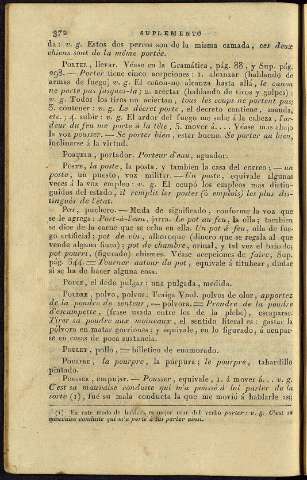 372 SUPLEMENTO
da: v. g. Estos dos perros son de la misma camada, ces deux
chiens sont de la même portée.
PORTER, llevar. Véase en la Gramática, pág. 88, y Sup. pág.
298. — Porter tiene cinco acepciones: 1. alcanzar (hablando de
armas de fuego) v. g. El cañon no alcanza hasta allá, le canon
ne porte pas jusques-là: 2. acertar (hablando de tiros y golpes):
v. g. Todos los tiros no aciertan, tous les coups ne portent pas:
3. contener: v. g. Le décret porte, el decreto contiene, manda,
etc.: 4. subir: v. g. El ardor del fuego me sube á la cabeza, l'ar-
deur du feu me porte à la tête, 5. mover á.... Véase mas abajo
la voz pousser. — Se porter bien, estar bueno. Se porter au bien,
inclinarse á la virtud.
PORTEUR, portador. Porteur d'eau, aguador.
POSTE, la poste, la posta, y tambien la casa del correo; — un
poste, un puesto, voz militar. — Un poste, equivale algunas
veces á la voz empleo: v. g. El ocupó los empleos mas distin-
guidos del estado, il remplit les postes (ó emplois) les plus dis-
tingués de l'état.
POT, puchero. — Muda de significado, conforme la voz que
se le agrega: Pot-à-l'eau, jarra. Le pot au feu, la olla; tambien
se dice de la carne que se echa en ella. Un pot à feu, olla de fue-
go artificial: pot de vin, alboroque (dinero que se regala al que
vende alguna finca); pot de chambre, orinal, y tal vez el bañado;
pot pourri, (figurado) chirmes. Véase acepciones de faire, Sup.
pág. 345. — Tourner autour du pot, equivale á titubear, dudar
si se ha de hacer alguna cosa.
POUCE, el dedo pulgar: una pulgada, medida.
POUDRE, polvo, polvos. Traiga Vmd. polvos de olor, apportez
de la poudre de senteur, — pólvora. — Prendre de la poudre
d'escampette, (frase usada entre los de la plebe), escaparse.
Tirer sa poudre aux moineaux, el sentido literal es: gastar la
pólvora en matar gorriones; y equivale, en lo figurado, á ocupar-
se en cosas de poca sustancia.
POULET, pollo, — billetico de enamorado.
POURPRE, la pourpre, la púrpura: le pourpre, tabardillo
pintado.
POUSSER, empujar. — Pousser, equivale, 1. á mover á... v. g.
C'est sa mauvaise conduite qui m'a poussé à lui parler de la
sorte (1), fué su mala conducta la que me movió á hablarle as;
(1) En este modo de hablar, es mejor usar del verbo porter: v. g. C'est sa
mauvaise conduite qui m'a porté à lui parler ainsi.